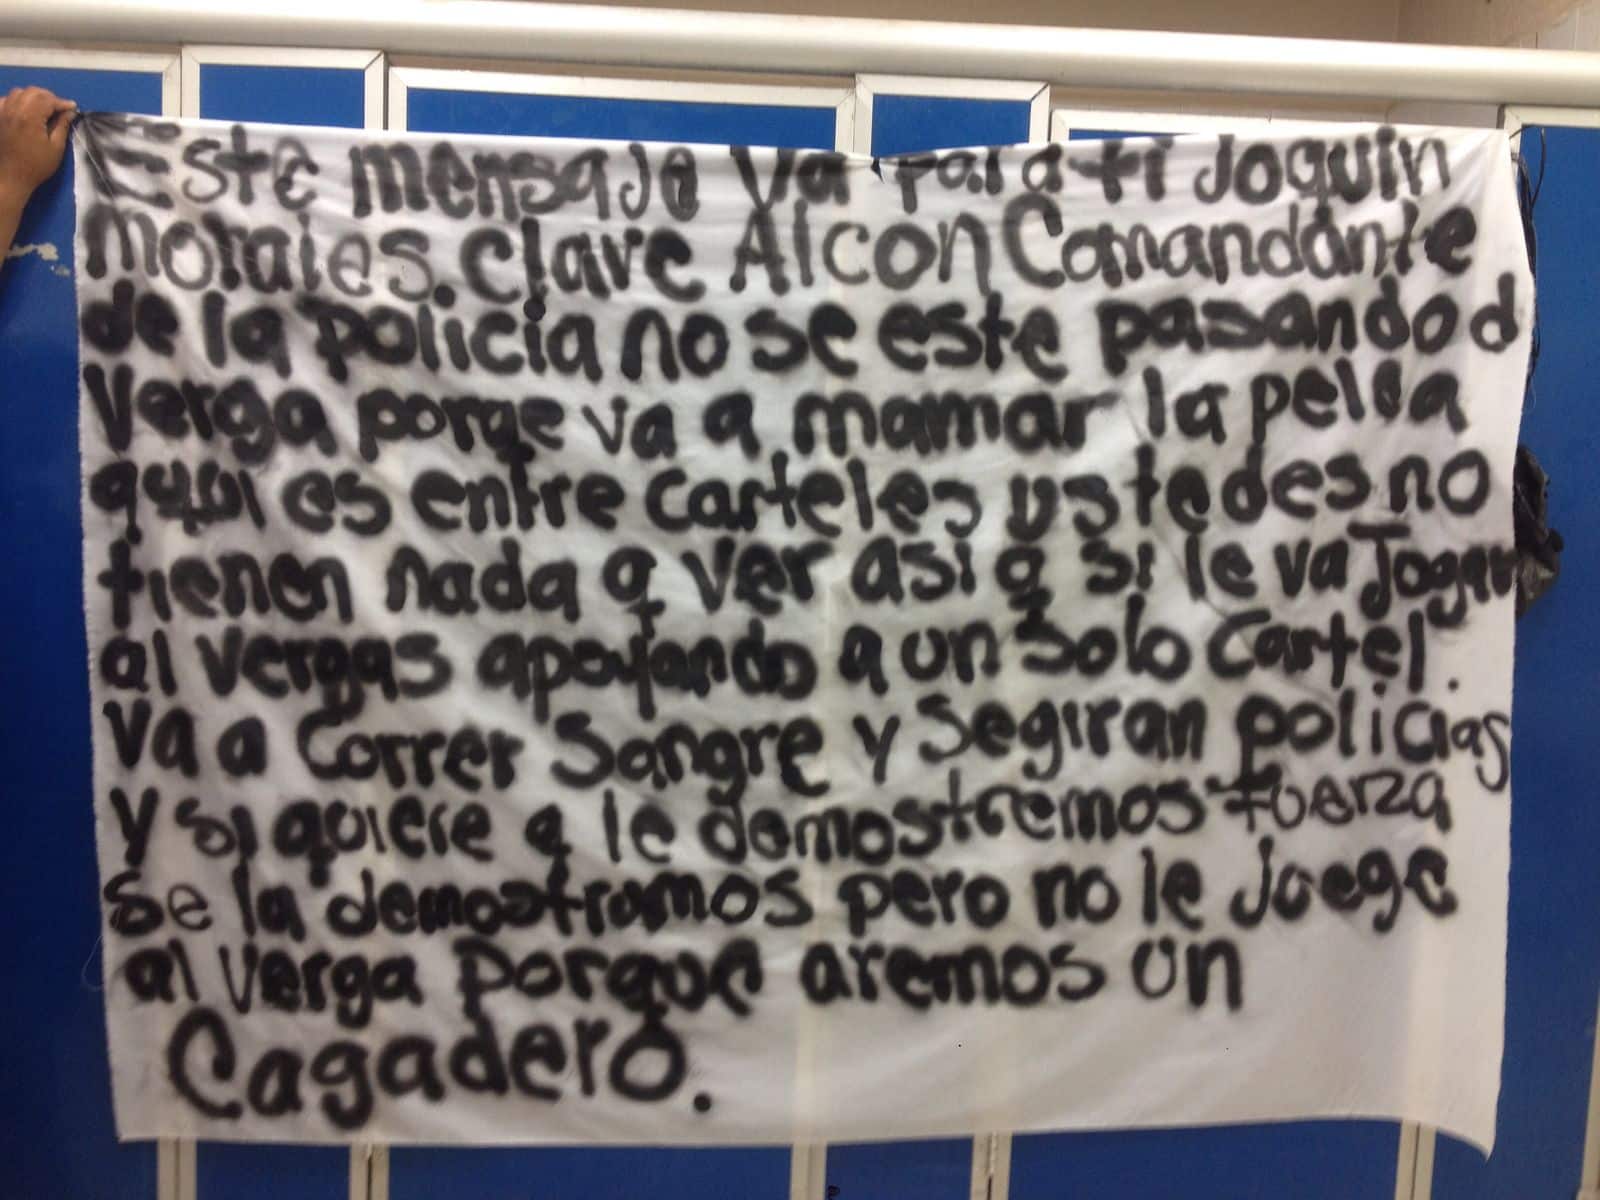 Este mensaje va para ti Joquin
Morales. clave Alcon Comandante
de la policia no se este pasando d
Verga porqe va a mamar la pelea
aqui es entre carteles ustedes no
tienen nada q ver asi q si le va Jogar
al vergas apoyando a un solo Cartel.
va a Correr Sangre y Segiran policias
y si quiere q le demostremos fuerza
se la demostramos pero no le juege
al verga porque aremos un
Cagadero.